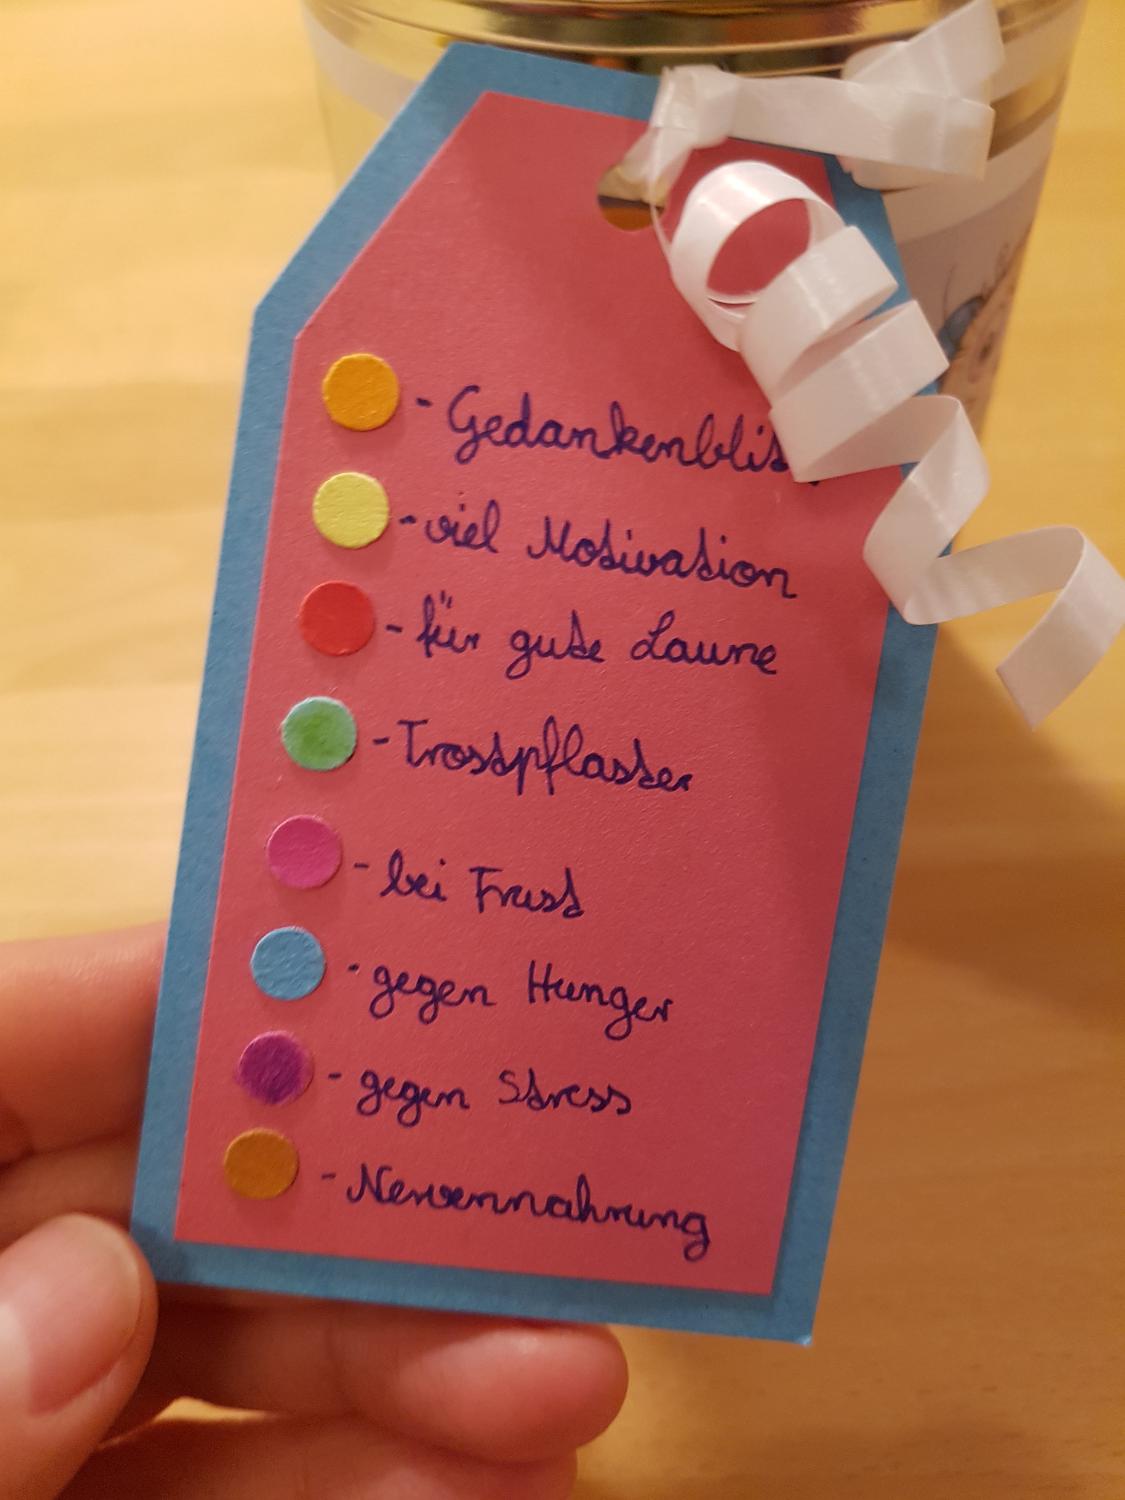 - Gedankenblitz
- viel Motivation
- für gute Laune
- Trostpflaster
- bei Frust
- gegen Hunger
- gegen Stress
- Nervennahrung